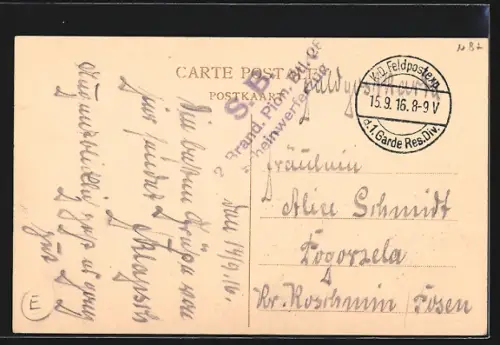 CARTE POSTALE
POSTKAART
S. B.
2. Brand. Pion. Btl. 28
Scheinwerferzug
K.D. Feldpostexp.
15.9.16.8-9 V
d.1.Garde Res.Div.
Feldpostkarte
Fräulein
Alice Schmidt
Pogorzela
Kr. Koschmin / Posen
den 14/9.16.
Die besten Grüße von
hier sendet
Augenblicklich geht es ganz
gut
E